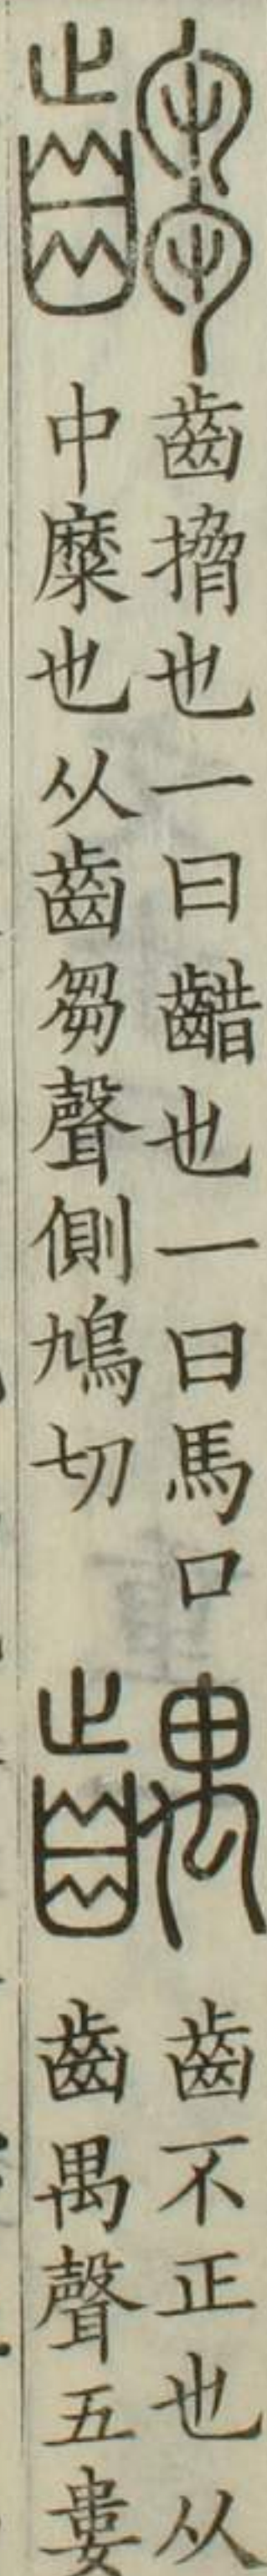 齺
齒搚也一曰齰也一曰馬口
中糜也从齒芻聲側鳩切
齵
齒不正也从
齒禺聲五婁